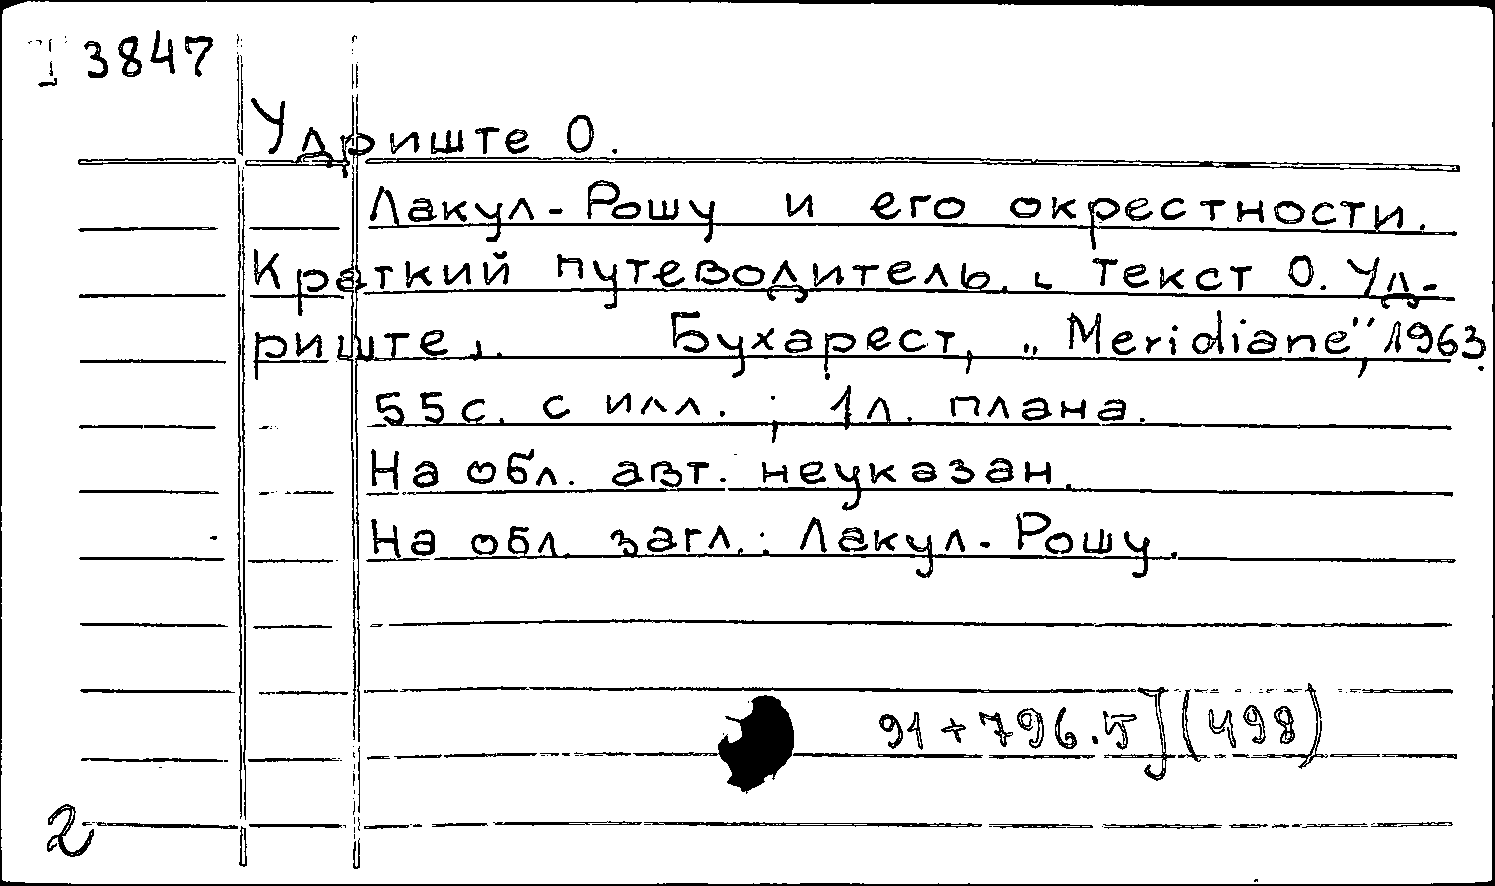 I 3847
Удриште О.
Лакул-Рошу и его окрестности.
Краткий путеводитель. [Текст О. Уд-
риште]. Бухарест, „Meridiane", 1963.
55с. с илл. ; 1л. плана.
На обл. авт. неуказан.
На обл. загл.: Лакул-Рошу.
91+796.5](498)
2